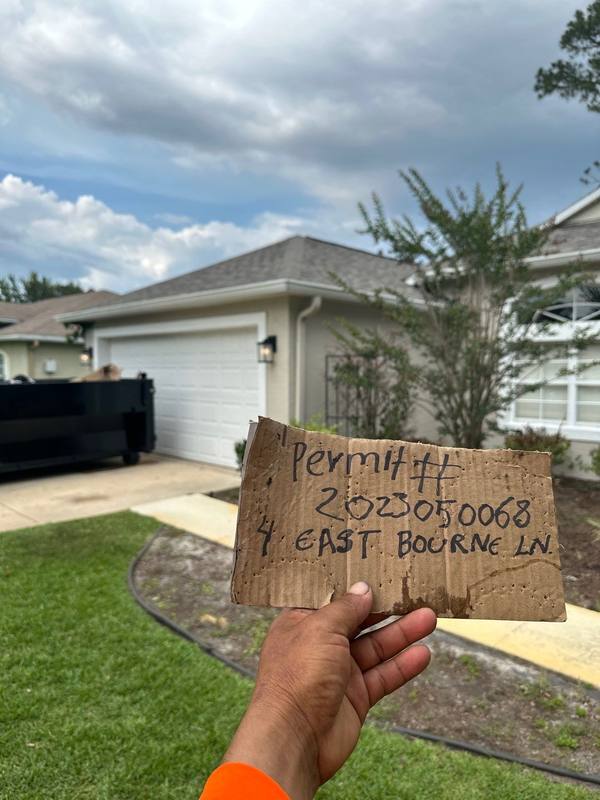 Permit #
2023050068
4 EAST BOURNE LN.